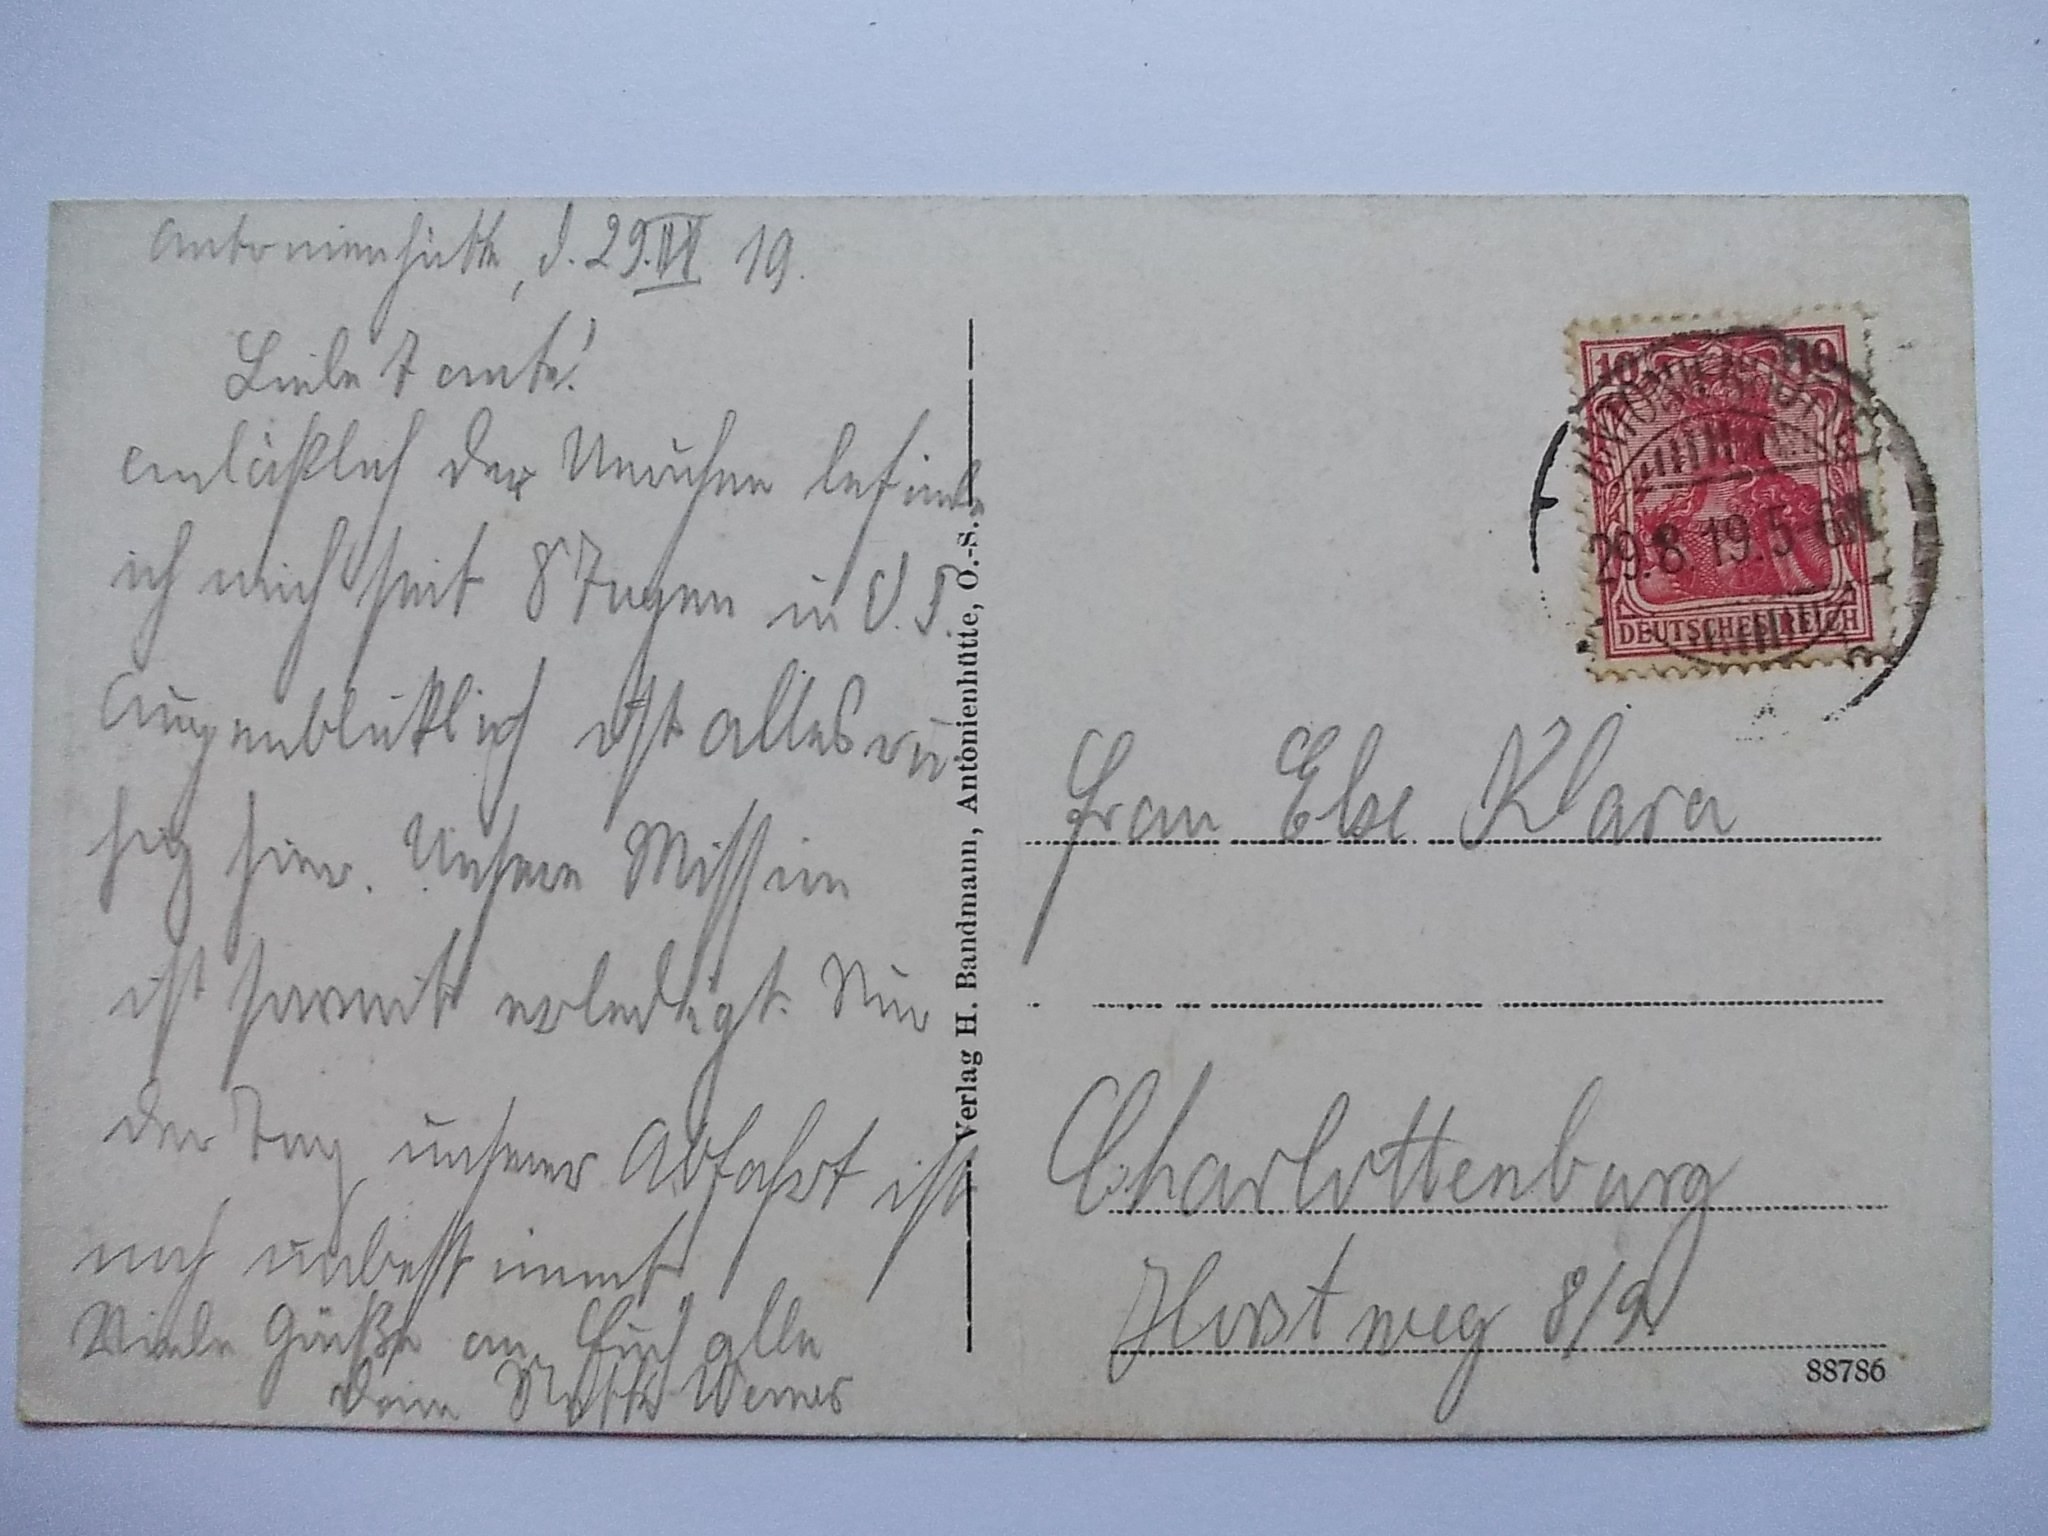 Antonienhütte, d. 29. VI 19.
Liebe Tante!
anläßlich der Unruhen befinde
ich mich seit 8 Tagen in O.S.
Augenblicklich ist alles ru-
hig hier. Unsere Mission
ist somit erledigt. Nur
der Tag unserer Abfahrt ist
noch unbestimmt
Viele Grüße an Euch alle
Dein Werner
Verlag H. Bandmann, Antonienhütte, O.-S.
10 10
ANTONIENHÜTTE
29.8.19.5-6N
DEUTSCHES REICH
Frau Else Klara
Charlottenburg
Horstweg 8/9
88786